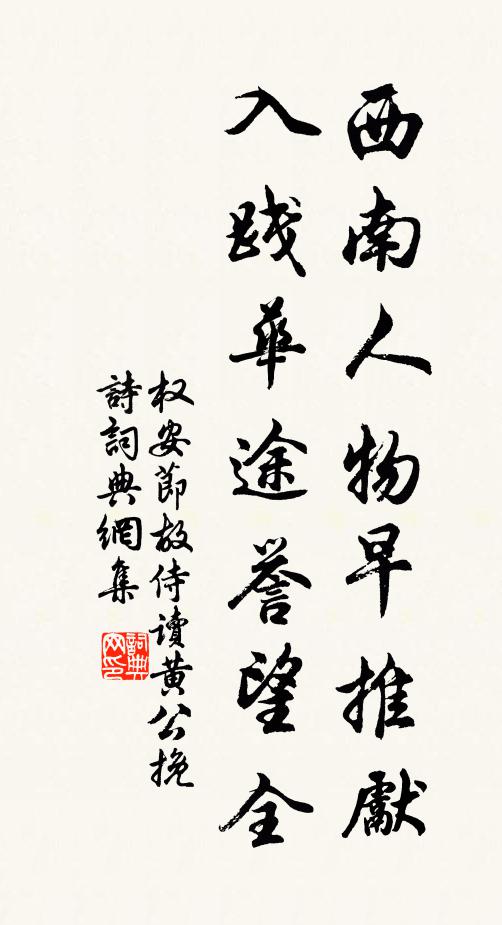 西南人物早推獻
入践華途誉望全
权安節故侍讀黄公挽
詩詞典網集
詞典
网印